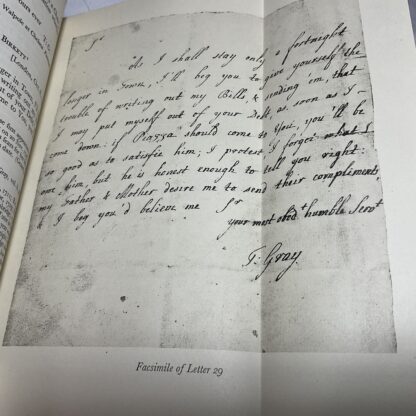 Walpole at Chris
BIRKETT
[London,
Sr
As I shall stay only a fortnight
longer in Town, I'll beg you to give yourself the
trouble of writing out my Bills, & sending 'em, that
I may put myself out of your Debt, as soon as I
come down: if Piazza should come to You, you'll be
so good as to satisfie him; I protest, I forget what I
owe him, but he is honest enough to tell you right:
my Father & Mother desire me to send their compliments,
& I beg you'd believe me Sr
your most obedt humble Servt
T: Gray.
Facsimile of Letter 29